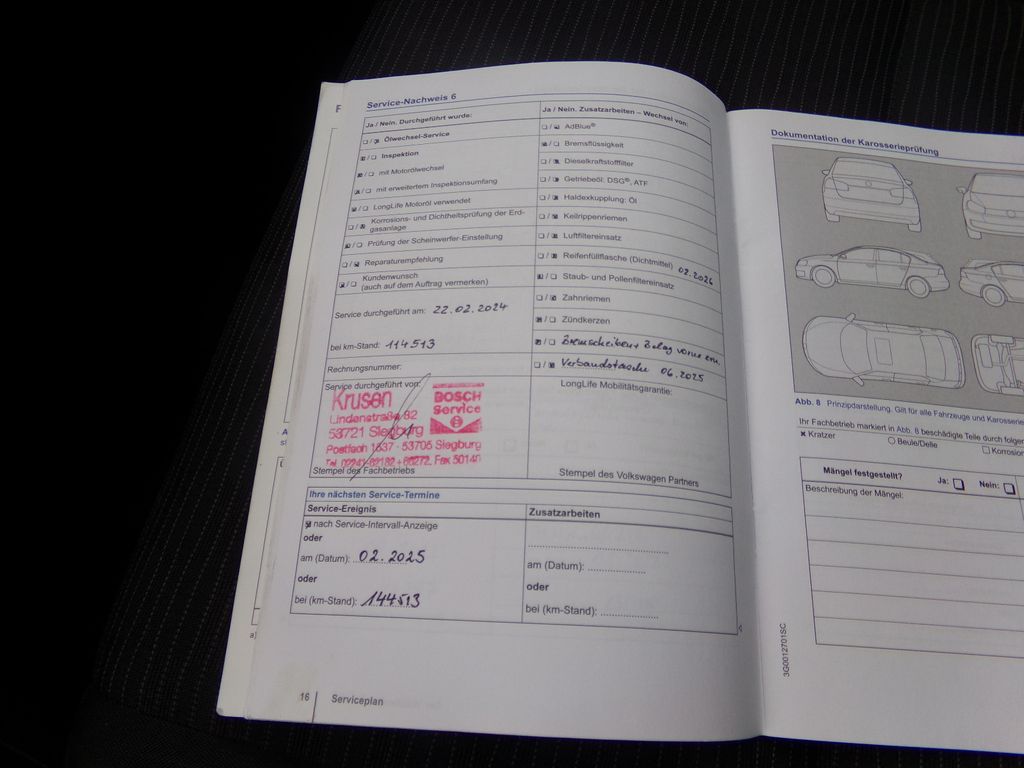 F
Service-Nachweis 6
Ja / Nein. Durchgeführt wurde:
/ Ölwechsel-Service
/ Inspektion
/ mit Motorölwechsel
/ mit erweitertem Inspektionsumfang
/ LongLife Motoröl verwendet
/ Korrosions- und Dichtheitsprüfung der Erd-
gasanlage
/ Prüfung der Scheinwerfer-Einstellung
/ Reparaturempfehlung
/ Kundenwunsch
(auch auf dem Auftrag vermerken)
Service durchgeführt am: 22.02.2024
bei km-Stand: 114513
Rechnungsnummer:
Service durchgeführt von:
Krusen
Lindenstraße 82
53721 Siegburg
Postfach 1637 · 53705 Siegburg
Tel. 02241/62182 + 66272, Fax 50140
BOSCH
Service
Stempel des Fachbetriebs
Ja / Nein. Zusatzarbeiten – Wechsel von:
/ AdBlue®
/ Bremsflüssigkeit
/ Dieselkraftstofffilter
/ Getriebeöl: DSG®, ATF
/ Haldexkupplung: Öl
/ Keilrippenriemen
/ Luftfiltereinsatz
/ Reifenfüllflasche (Dichtmittel) 02.2026
/ Staub- und Pollenfiltereinsatz
/ Zahnriemen
/ Zündkerzen
/ Bremscheiben + Belag vorne ern.
/ Verbandstasche 06.2025
LongLife Mobilitätsgarantie:
Stempel des Volkswagen Partners
Ihre nächsten Service-Termine
Service-Ereignis
nach Service-Intervall-Anzeige
oder
am (Datum): 02.2025
oder
bei (km-Stand): 144513
Zusatzarbeiten
am (Datum):
oder
bei (km-Stand):
a)
16 Serviceplan
Dokumentation der Karosserieprüfung
Abb. 8 Prinzipdarstellung. Gilt für alle Fahrzeuge und
Ihr Fachbetrieb markiert in Abb. 8 beschädigte Teile durch
x Kratzer
Beule/Delle
Mängel festgestellt? Ja: Nein:
Beschreibung der Mängel:
3G0012701SC